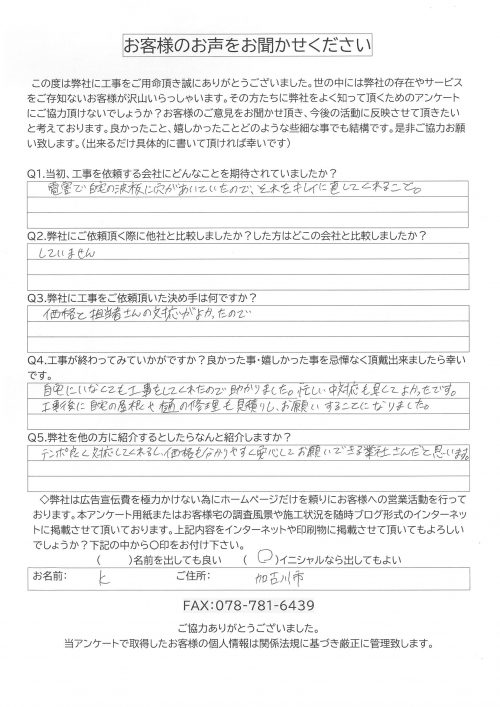 お客様のお声をお聞かせください
この度は弊社に工事をご用命頂き誠にありがとうございました。世の中には弊社の存在やサービス
をご存知ないお客様が沢山いらっしゃいます。その方たちに弊社をよく知って頂くためのアンケート
にご協力頂けないでしょうか？お客様のご意見をお聞かせ頂き、今後の活動に反映させて頂きたい
と考えております。良かったこと、嬉しかったことどのような些細な事でも結構です。是非ご協力お願
い致します。（出来るだけ具体的に書いて頂ければ幸いです）
Q1.当初、工事を依頼する会社にどんなことを期待されていましたか？
雹害で自宅の波板に穴があいていたので、それをキレイに直してくれること。
Q2.弊社にご依頼頂く際に他社と比較しましたか？した方はどこの会社と比較しましたか？
していません
Q3.弊社に工事をご依頼頂いた決め手は何ですか？
価格と担当者さんの対応がよかったので
Q4.工事が終わってみていかがですか？良かった事・嬉しかった事を忌憚なく頂戴出来ましたら幸い
です。
自宅にいなくても工事をしてくれたので助かりました。忙しい中対応も早くてよかったです。
工事後に自宅の屋根や樋の修理も見積りし、お願いすることになりました。
Q5.弊社を他の方に紹介するとしたらなんと紹介しますか？
テンポ良く対応してくれるし、価格も分かりやすく安心してお願いできる業社さんだと思います。
◇弊社は広告宣伝費を極力かけない為にホームページだけを頼りにお客様への営業活動を行って
おります。本アンケート用紙またはお客様宅の調査風景や施工状況を随時ブログ形式のインターネッ
トに掲載させて頂いております。上記内容をインターネットや印刷物に掲載させて頂いてもよろしい
でしょうか？下記の中から〇印をお付け下さい。
（　　）名前を出しても良い　（〇）イニシャルなら出してもよい
お名前： K ご住所： 加古川市
FAX:078-781-6439
ご協力ありがとうございました。
当アンケートで取得したお客様の個人情報は関係法規に基づき厳正に管理致します。